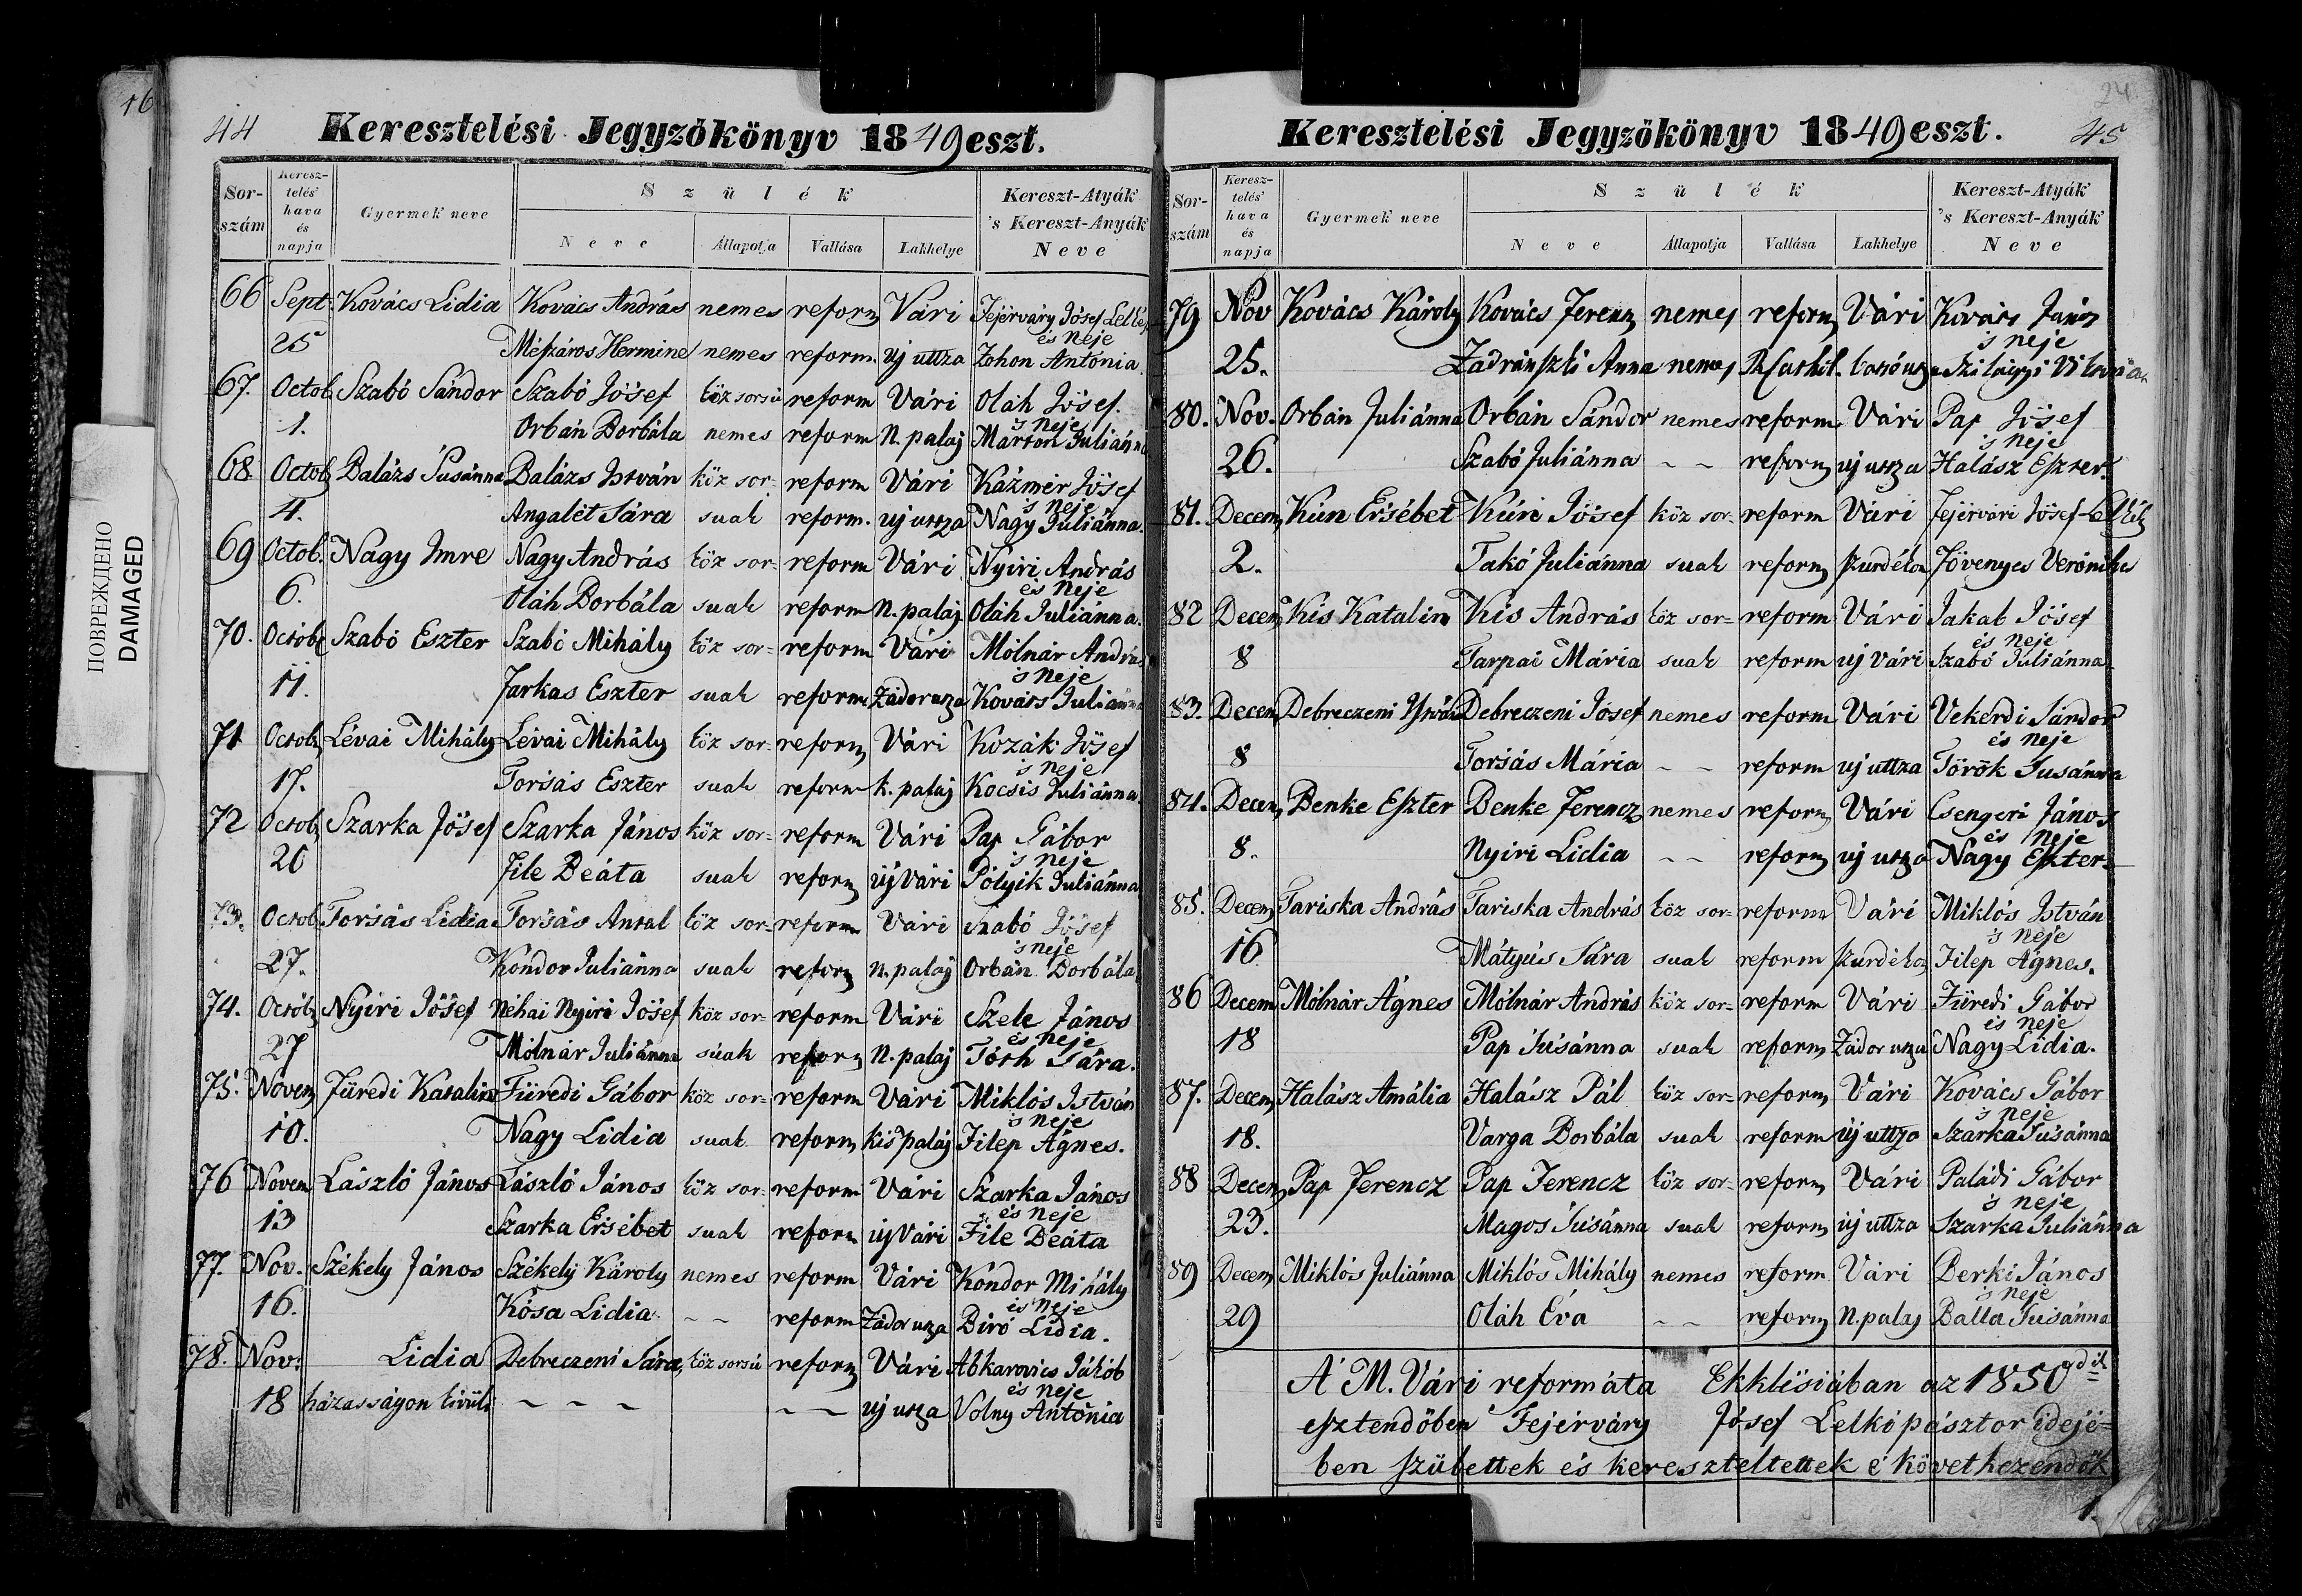 16
ПОВРЕЖДЕНО
DAMAGED
44
Keresztelési Jegyzőkönyv 1849 eszt.
Sor-szám
Keresz-telés' hava és napja
Gyermek neve
Szülék
Neve
Állapotja
Vallása
Lakhelye
Kereszt-Atyák 's Kereszt-Anyák Neve
66 Sept. Kovács Lidia Kovács András nemes reform Vári Fejérváry Jósef
és Neje
25 Mészáros Hermine nemes reform. uj uttza Zohon Antonia
67. Octob Szabó Sándor Szabó Jósef köz sorsú reform Vári Oláh Jósef.
's Neje
1. Orbán Borbála nemes reform N. palaj Marton Juliánna
68 Octob Balázs Susánna Balázs István köz sor- reform Vári Kázmér Jósef
's Neje
4. Angalét Sára suah reform. uj utsza Nagy Juliánna.
69 Octob. Nagy Imre Nagy András köz sor- reform Vári Nyiri András
és Neje
6. Oláh Borbála suah reform N. palaj Oláh Juliánna.
70. Octob Szabó Eszter Szabó Mihály köz sor- reform Vári Mólnár András
's Neje
11. Farkas Eszter suah reform Zádor utsza Kovács Juliánna
71 Octob Lévai Mihály Lévai Mihály köz sor- reform Vári Kozák Jósef
's Neje
17. Forsás Eszter suah reform k. palaj Kocsis Juliánna.
72 Octob Szarka Jósef Szarka János köz sor- reform Vári Pap Gábor
's Neje
20 File Beáta suah reform uj Vári Pólyik Juliánna
73. Octob Forsás Lidia Forsás Antal köz sor- reform Vári Szabó Jósef
's Neje
27. Kondor Juliánna suah reform n. palaj Orbán Borbála
74. Octob Nyiri Jósef Néhai Nyiri Jósef köz sor- reform Vári Szele János
és Neje
27 Mólnár Juliánna suah reform N. palaj Tóth Sára.
75. Novem Füredi Katalin Füredi Gábor köz sor- reform Vári Miklós István
's Neje
10. Nagy Lidia suah reform kis palaj Filep Ágnes.
76 Novem László János László János köz sor- reform Vári Szarka János
és Neje
13 Szarka Ersébet suah reform uj Vári File Beáta
77. Nov. Székely János Székely Károly nemes reform Vári Kóndor Mihály
és Neje
16. Kósa Lidia - - reform Zádor utsza Biró Lidia.
78. Nov. Lidia Debreczeni Sára, köz sorsú reform Vári Abkarovics Jákób
és Neje
18 házasságon kivüli - - - - - uj utsza Volny Antónia
24
45
Keresztelési Jegyzőkönyv 1849 eszt.
Sor-szám
Keresz-telés' hava és napja
Gyermek neve
Szülék
Neve
Állapotja
Vallása
Lakhelye
Kereszt-Atyák 's Kereszt-Anyák Neve
79 Nov Kovács Károly Kovács Ferenz nemes reform Vári Kovács János
's Neje
25. Zadránszki Anna nemes Szilágyi
80. Nov. Orbán Juliánna Orbán Sándor nemes reform Vári Pap Jósef
's Neje
26. Szabó Juliánna - - reform uj utsza Halász Eszter.
81. Decem Kún Ersébet Kún Jósef köz sor- reform Vári Fejérvári Jósef
2. Takó Juliánna suah reform Jövenyes Verónika
82 Decem Kis Katalin Kis András köz sor- reform Vári Jakab Jósef
és Neje
8 Tarpai Mária suah reform uj Vári Szabó Juliánna
83. Decem Debreczeni István Debreczeni Jósef nemes reform Vári Vekerdi Sándor
és Neje
8 Forsás Mária - - reform uj uttza Török Susánna
84. Decem Benke Eszter Benke Ferencz nemes reform Vári Csengeri János
és Neje
8. Nyiri Lidia - - reform uj utsza Nagy Eszter.
85. Decem Tariska András Tariska András köz sor- reform Vári Miklós István
's Neje
16 Mátyús Sára suah reform Filep Ágnes.
86 Decem Mólnár Ágnes Mólnár András köz sor- reform Vári Füredi Gábor
és Neje
18 Pap Susánna suah reform Zádor utsza Nagy Lidia.
87. Decem Halász Amália Halász Pál köz sor- reform Vári Kovács Gábor
's Neje
18. Varga Borbála suah reform uj uttza Szarka Susánna
88 Decem Pap Ferencz Pap Ferencz köz sor- reform Vári Paládi Gábor
's Neje
23. Magos Susánna suah reform uj uttza Szarka Juliánna
89 Decem Miklós Juliánna Miklós Mihály nemes reform Vári Berki János
's Neje
29 Oláh Éva - - reform N. palaj Balla Susánna
A' M. Vári reformáta Ekklésiában az 1850dik
esztendőben Fejérváry Jósef Lelkipásztor idejé-
ben születtek és kereszteltettek e' következendők
1.